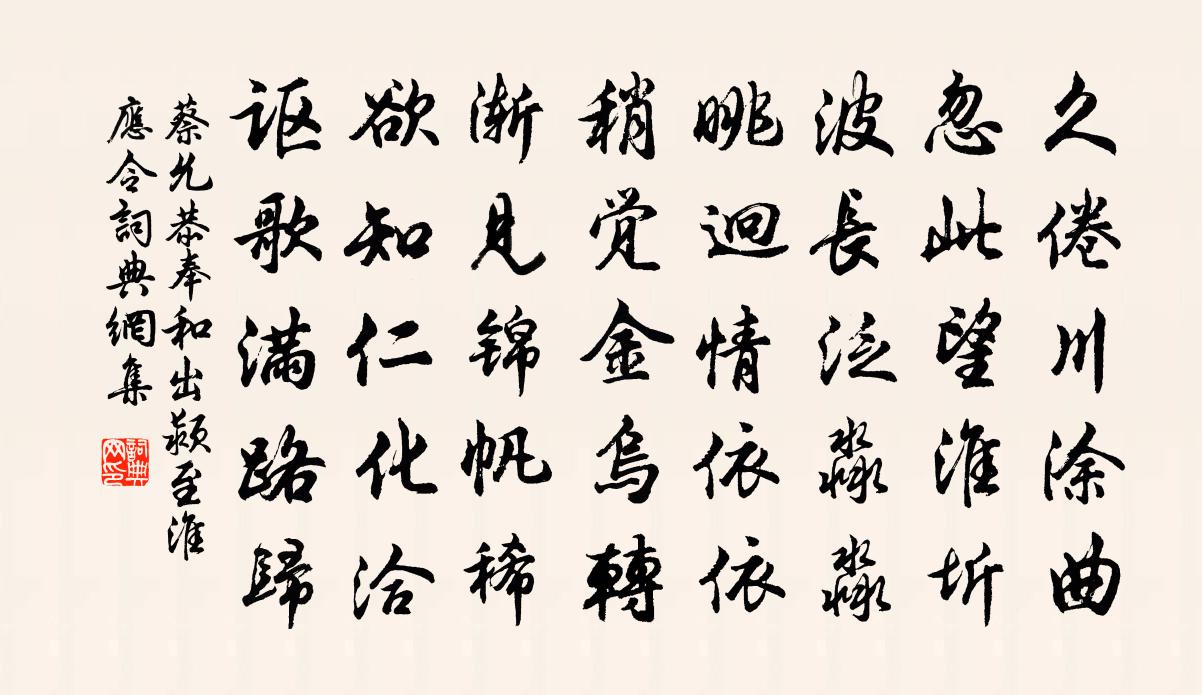 久倦川涂曲
忽此望淮圻
波長泛淼淼
眺迴情依依
稍觉金烏轉
渐見锦帆稀
欲知仁化洽
讴歌满路歸
蔡允恭奉和出颍至淮
應令詞典網集
詞典網印